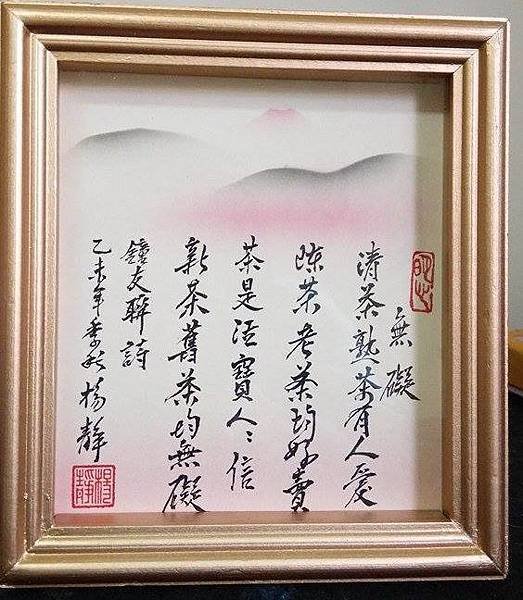 無礙
清茶熟茶有人愛
陳茶老茶均好賣
茶是活寶人人信
新茶舊茶均無礙
鐘友聯詩
乙未年季秋楊靜
楊靜